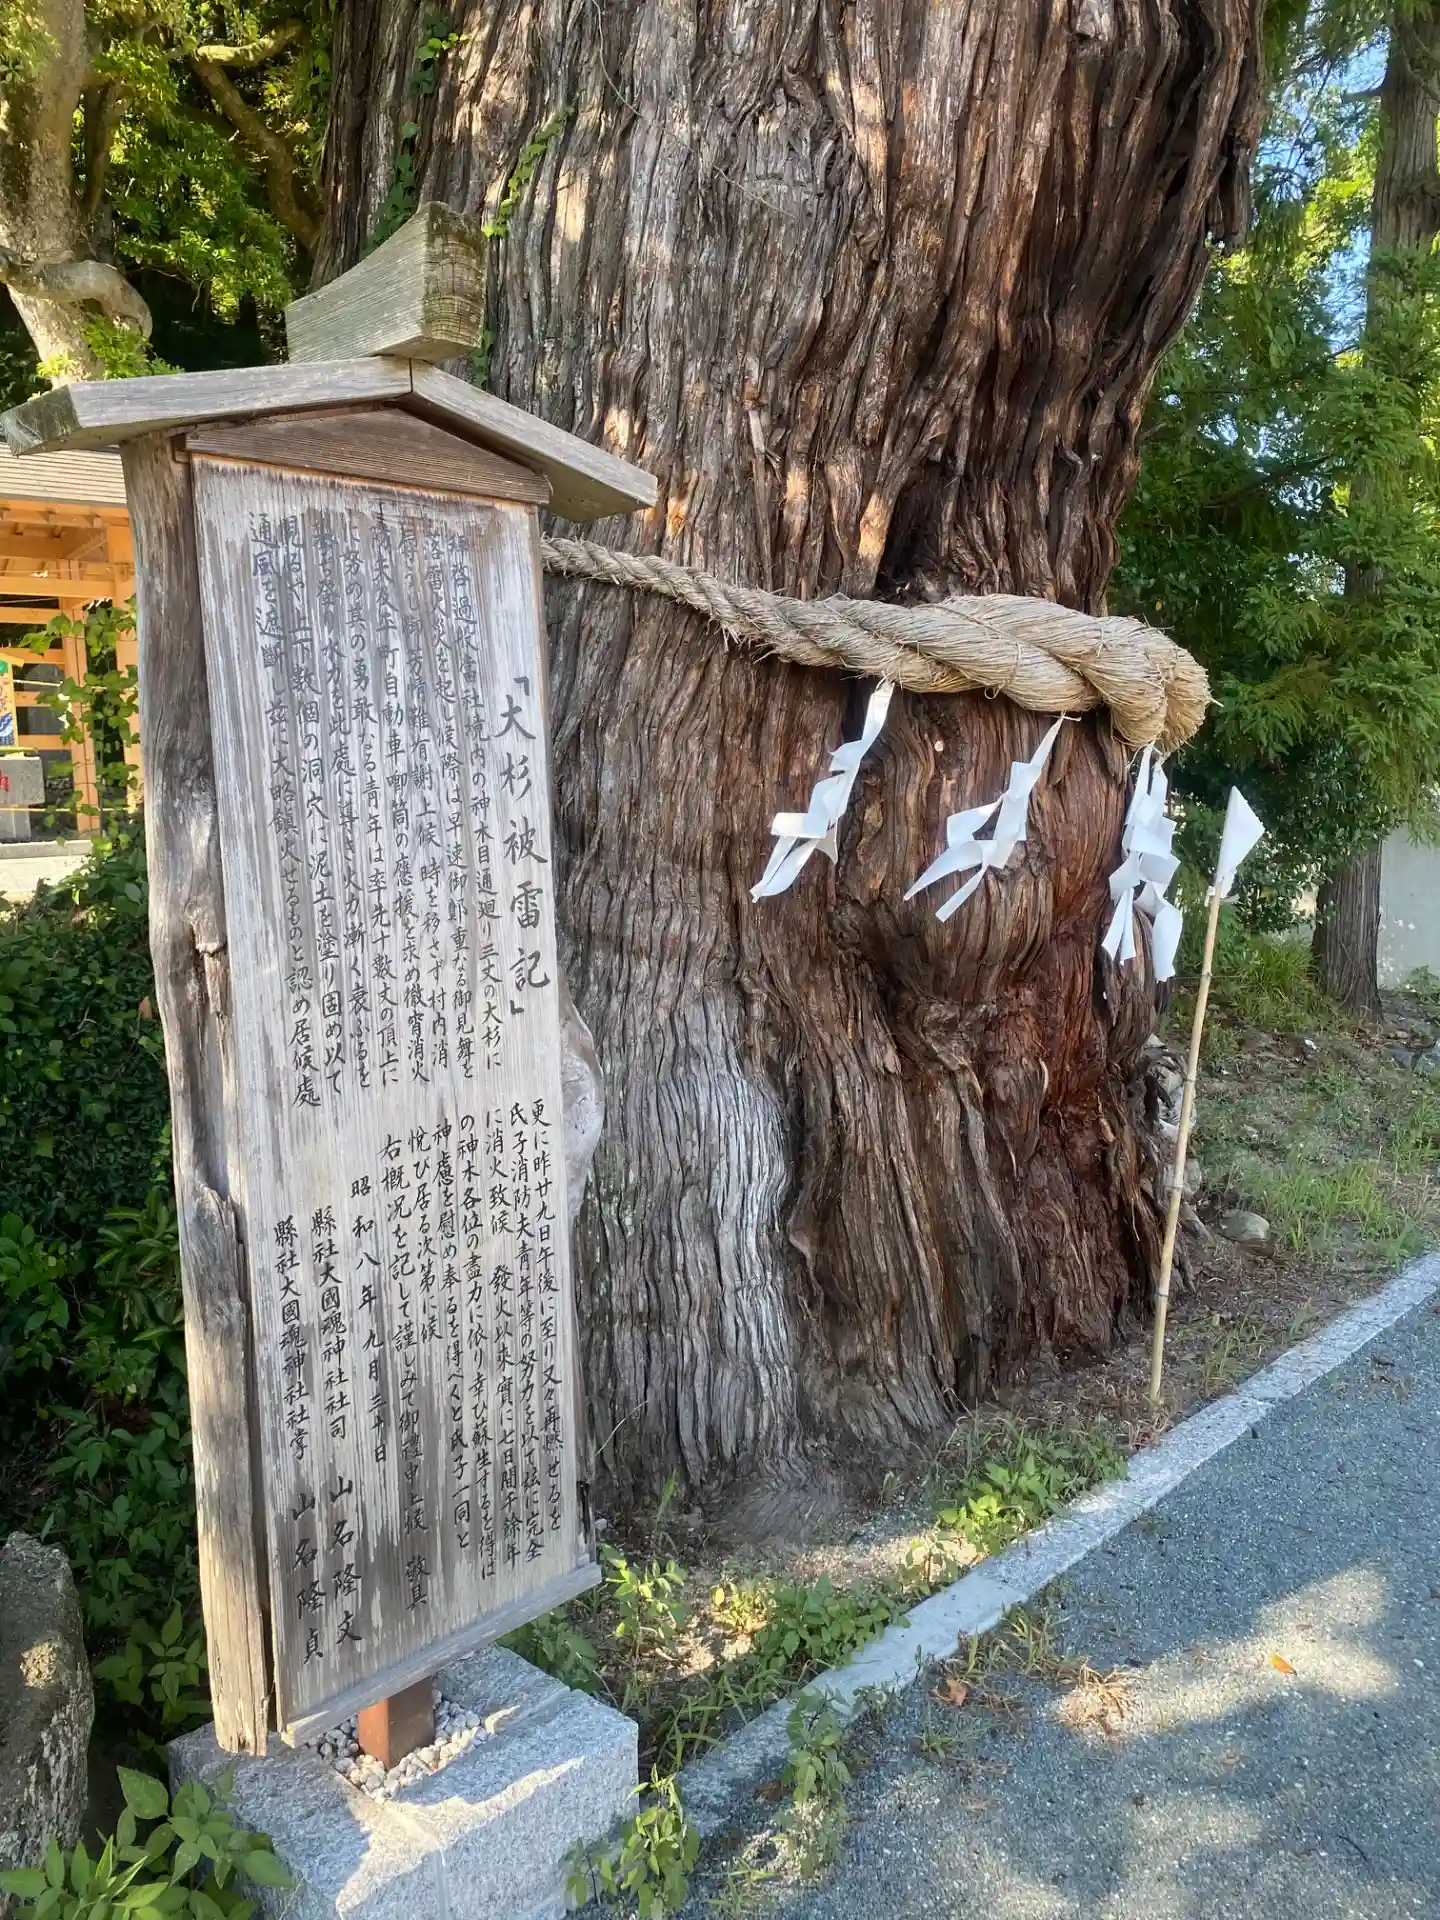 「大杉被雷記」
拝啓過般當社境内の神木目通廻り三丈の大杉に
落雷火災を起し候際は早速御鄭重なる御見舞を
辱ふし御芳情難有謝上候 時を移さず村内消
未及平町自動車喞筒の應援を求め徹宵消火
に努め其の勇敢なる青年は率先十數丈の頂上に
水力を此處に導き火力漸く衰ふるを
視るや上下數個の洞穴に泥土を塗り固め以て
通風を遮断し茲に大略鎮火せるものと認め居候處
更に昨廿九日午後に至り又々再燃せるを
氏子消防夫青年等の努力を以て茲に完全
に消火致候 發火以来實に七日間千餘年
の神木各位の盡力に依り幸ひ蘇生するを得ば
神慮を慰め奉るを得べくと氏子一同と
悅び居る次第に候
右概況を記して謹しみて御禮申上候 敬具
昭和八年九月三十日
縣社大國魂神社社司 山名隆文
縣社大國魂神社社掌 山名隆貞